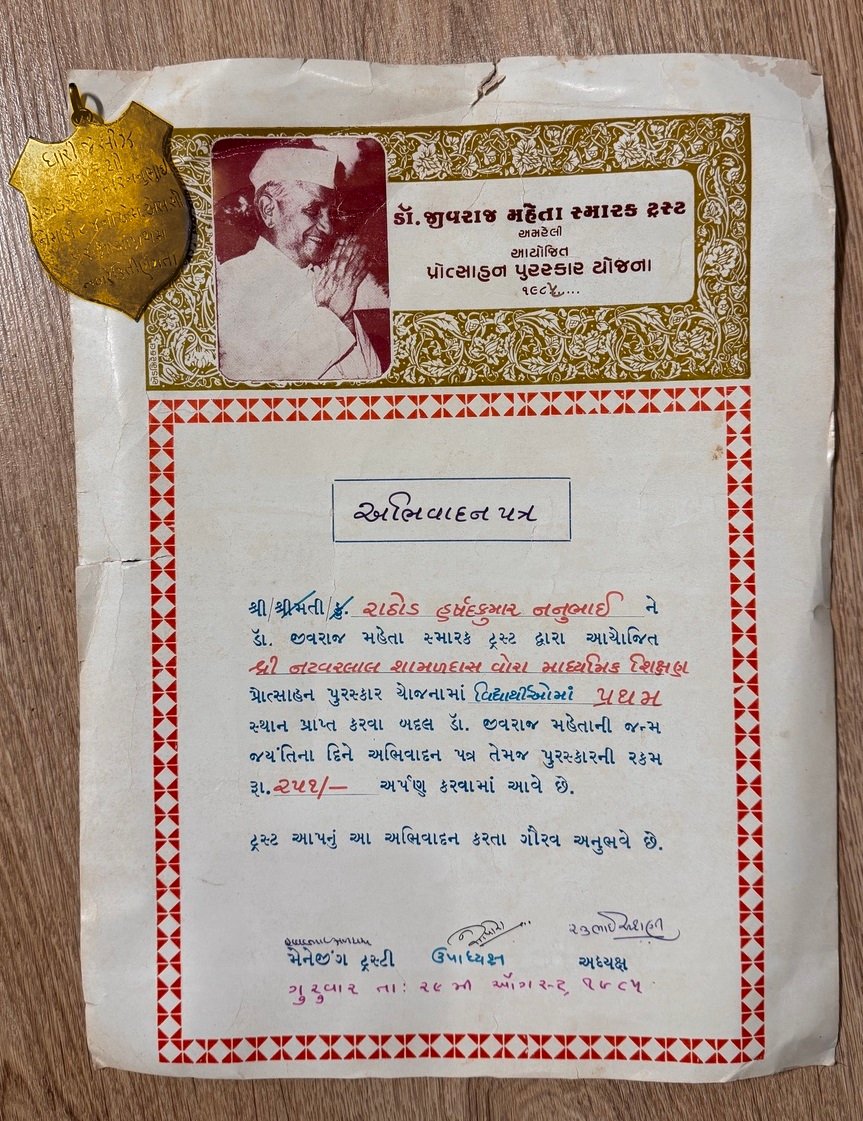 ધારી જેસીઝ
ડૉ. જીવરાજ મહેતા સ્મારક ટ્રસ્ટ
અમરેલી
આયોજિત
પ્રોત્સાહન પુરસ્કાર યોજના
૧૯૮૫.....
અભિવાદન પત્ર
શ્રી/શ્રીમતી/કુ. રાઠોડ હર્ષદકુમાર નનુભાઈ ને
ડૉ. જીવરાજ મહેતા સ્મારક ટ્રસ્ટ દ્વારા આયોજિત
શ્રી નટવરલાલ શામળદાસ વોરા માધ્યમિક શિક્ષણ
પ્રોત્સાહન પુરસ્કાર યોજનામાં વિદ્યાર્થીઓમાં પ્રથમ
સ્થાન પ્રાપ્ત કરવા બદલ ડૉ. જીવરાજ મહેતાની જન્મ
જયંતિના દિને અભિવાદન પત્ર તેમજ પુરસ્કારની રકમ
રૂા. ૨૫૧/- અર્પણ કરવામાં આવે છે.
ટ્રસ્ટ આપનું આ અભિવાદન કરતા ગૌરવ અનુભવે છે.
મેનેજીંગ ટ્રસ્ટી ઉપાધ્યક્ષ અધ્યક્ષ
ગુરુવાર તા: ૨૯ મી ઑગસ્ટ, ૧૯૮૫